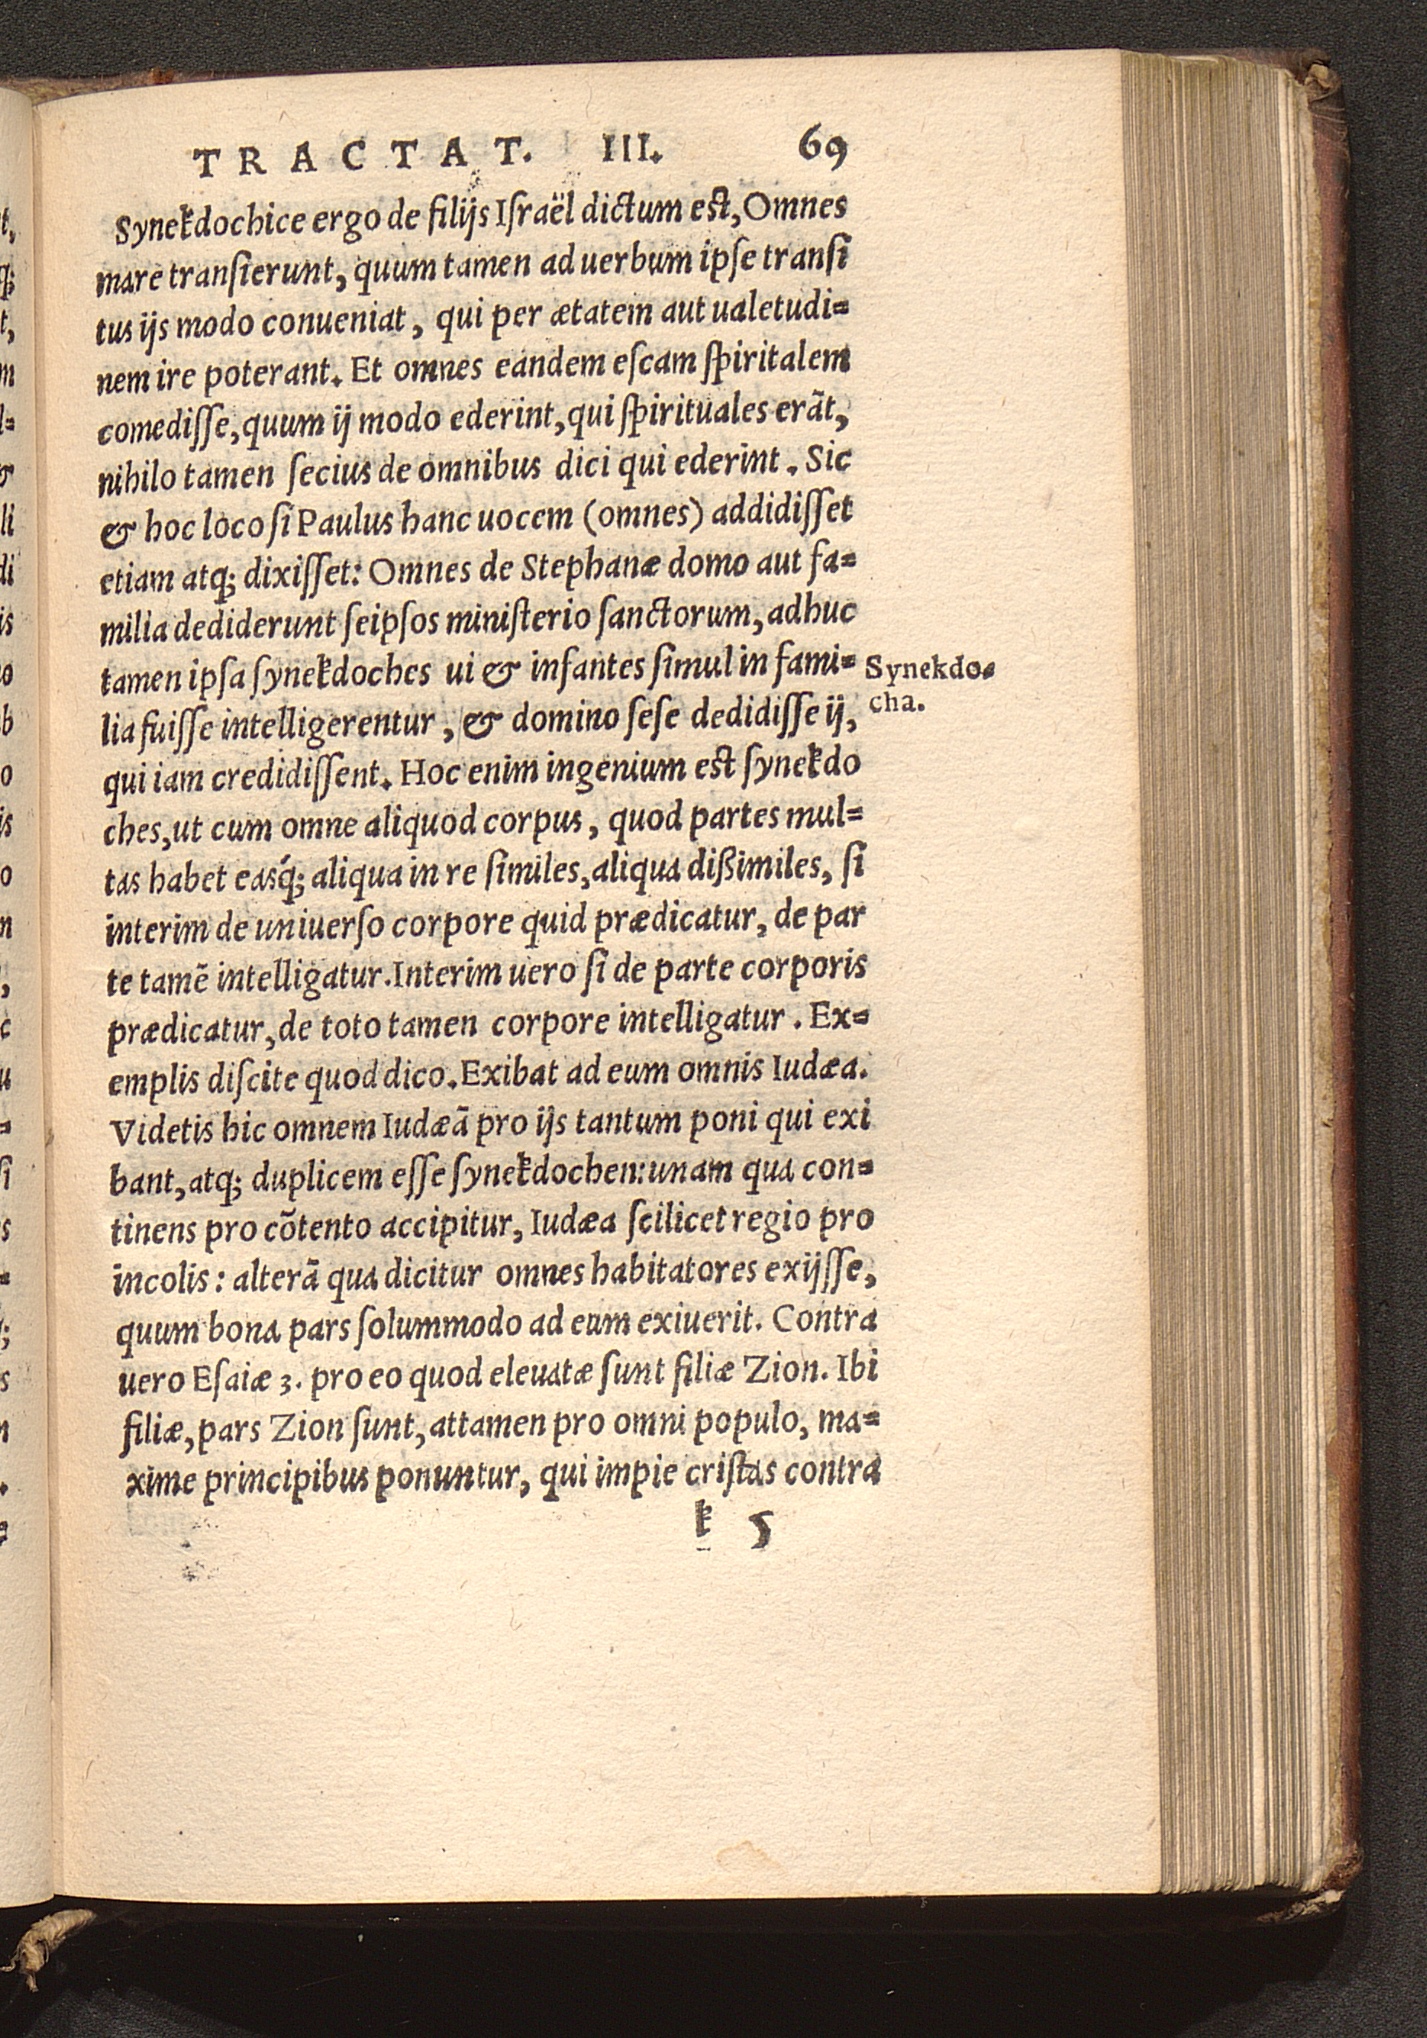 TRACTAT. III. 69
Synekdochice ergo de filijs Iſraël dictum est, Omnes
mare tranſierunt, quum tamen ad uerbum ipſe tranſi
tus ijs modo conueniat, qui per ætatem aut ualetudi=
nem ire poterant. Et omnes eandem eſcam ſpiritalem
comediſſe, quum ij modo ederint, qui ſpirituales erãt,
nihilo tamen ſecius de omnibus dici qui ederint. Sic
& hoc loco ſi Paulus hanc uocem (omnes) addidiſſet
etiam atq; dixiſſet: Omnes de Stephanæ domo aut fa=
milia dediderunt ſeipſos miniſterio ſanctorum, adhuc
tamen ipſa ſynekdoches ui & infantes ſimul in fami=
Synekdo=
cha.
lia fuiſſe intelligerentur, & domino ſeſe dedidiſſe ij,
qui iam credidiſſent. Hoc enim ingenium est ſynekdo
ches, ut cum omne aliquod corpus, quod partes mul=
tas habet easq́; aliqua in re ſimiles, aliqua dißimiles, ſi
interim de uniuerſo corpore quid prædicatur, de par
te tamẽ intelligatur. Interim uero ſi de parte corporis
prædicatur, de toto tamen corpore intelligatur. Ex=
emplis diſcite quod dico. Exibat ad eum omnis Iudæa.
Videtis hic omnem Iudæã pro ijs tantum poni qui exi
bant, atq; duplicem eſſe ſynekdochen: unam qua con=
tinens pro cõtento accipitur, Iudæa ſcilicet regio pro
incolis: alterã qua dicitur omnes habitatores exijſſe,
quum bona pars ſolummodo ad eum exiuerit. Contra
uero Eſaiæ 3. pro eo quod eleuatæ ſunt filiæ Zion. Ibi
filiæ, pars Zion ſunt, attamen pro omni populo, ma=
xime principibus ponuntur, qui impie criſtas contra
k 5